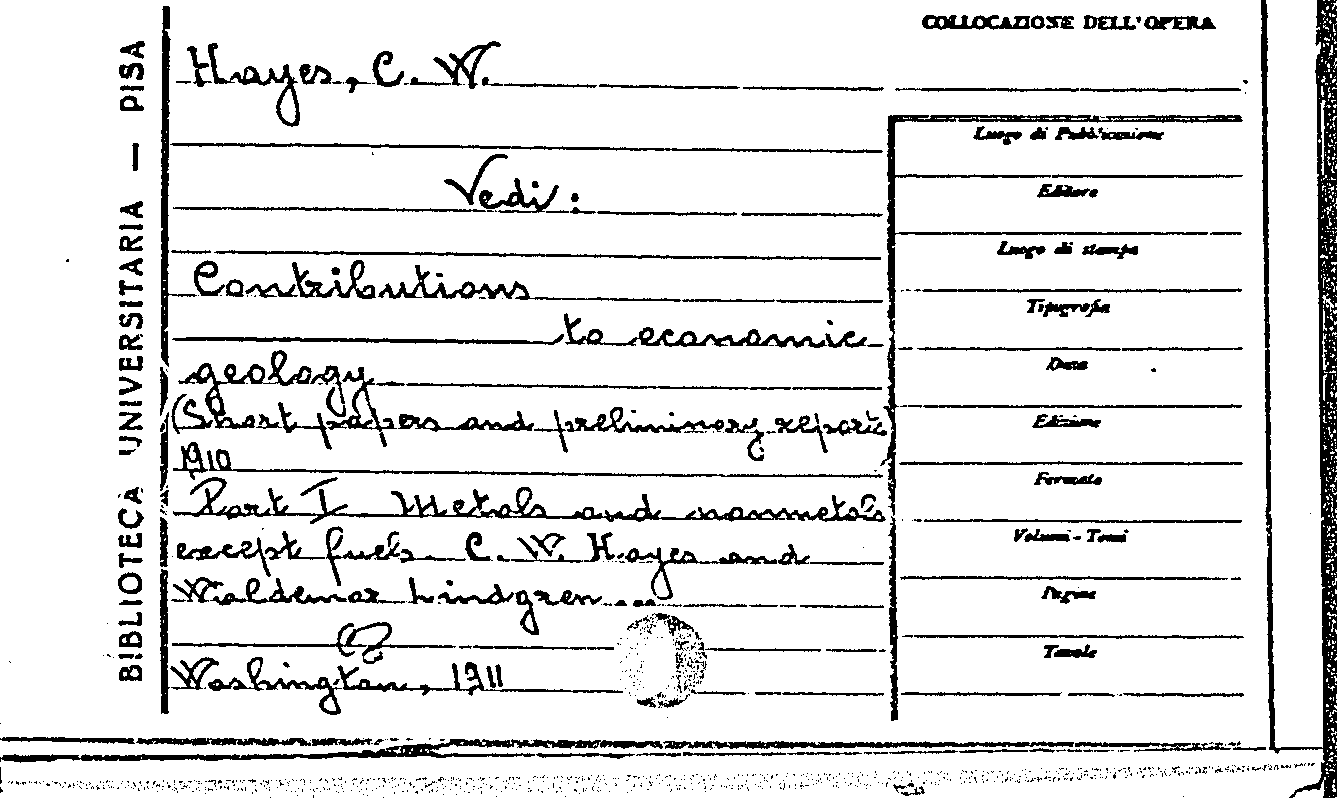 COLLOCAZIONE DELL'OPERA
BIBLIOTECA UNIVERSITARIA — PISA
Hayes, C. W.
Vedi:
Contributions
to economic
geology
(Short papers and preliminory reports)
1910
Part I Metals and nonmetals
except fuels. C. W. Hayes and
Waldemar Lindgren...
Washington, 1911
Luogo di Pubblicazione
Editore
Luogo di stampa
Tipografia
Data
Edizione
Formato
Volumi - Tomi
Pagine
Tavole